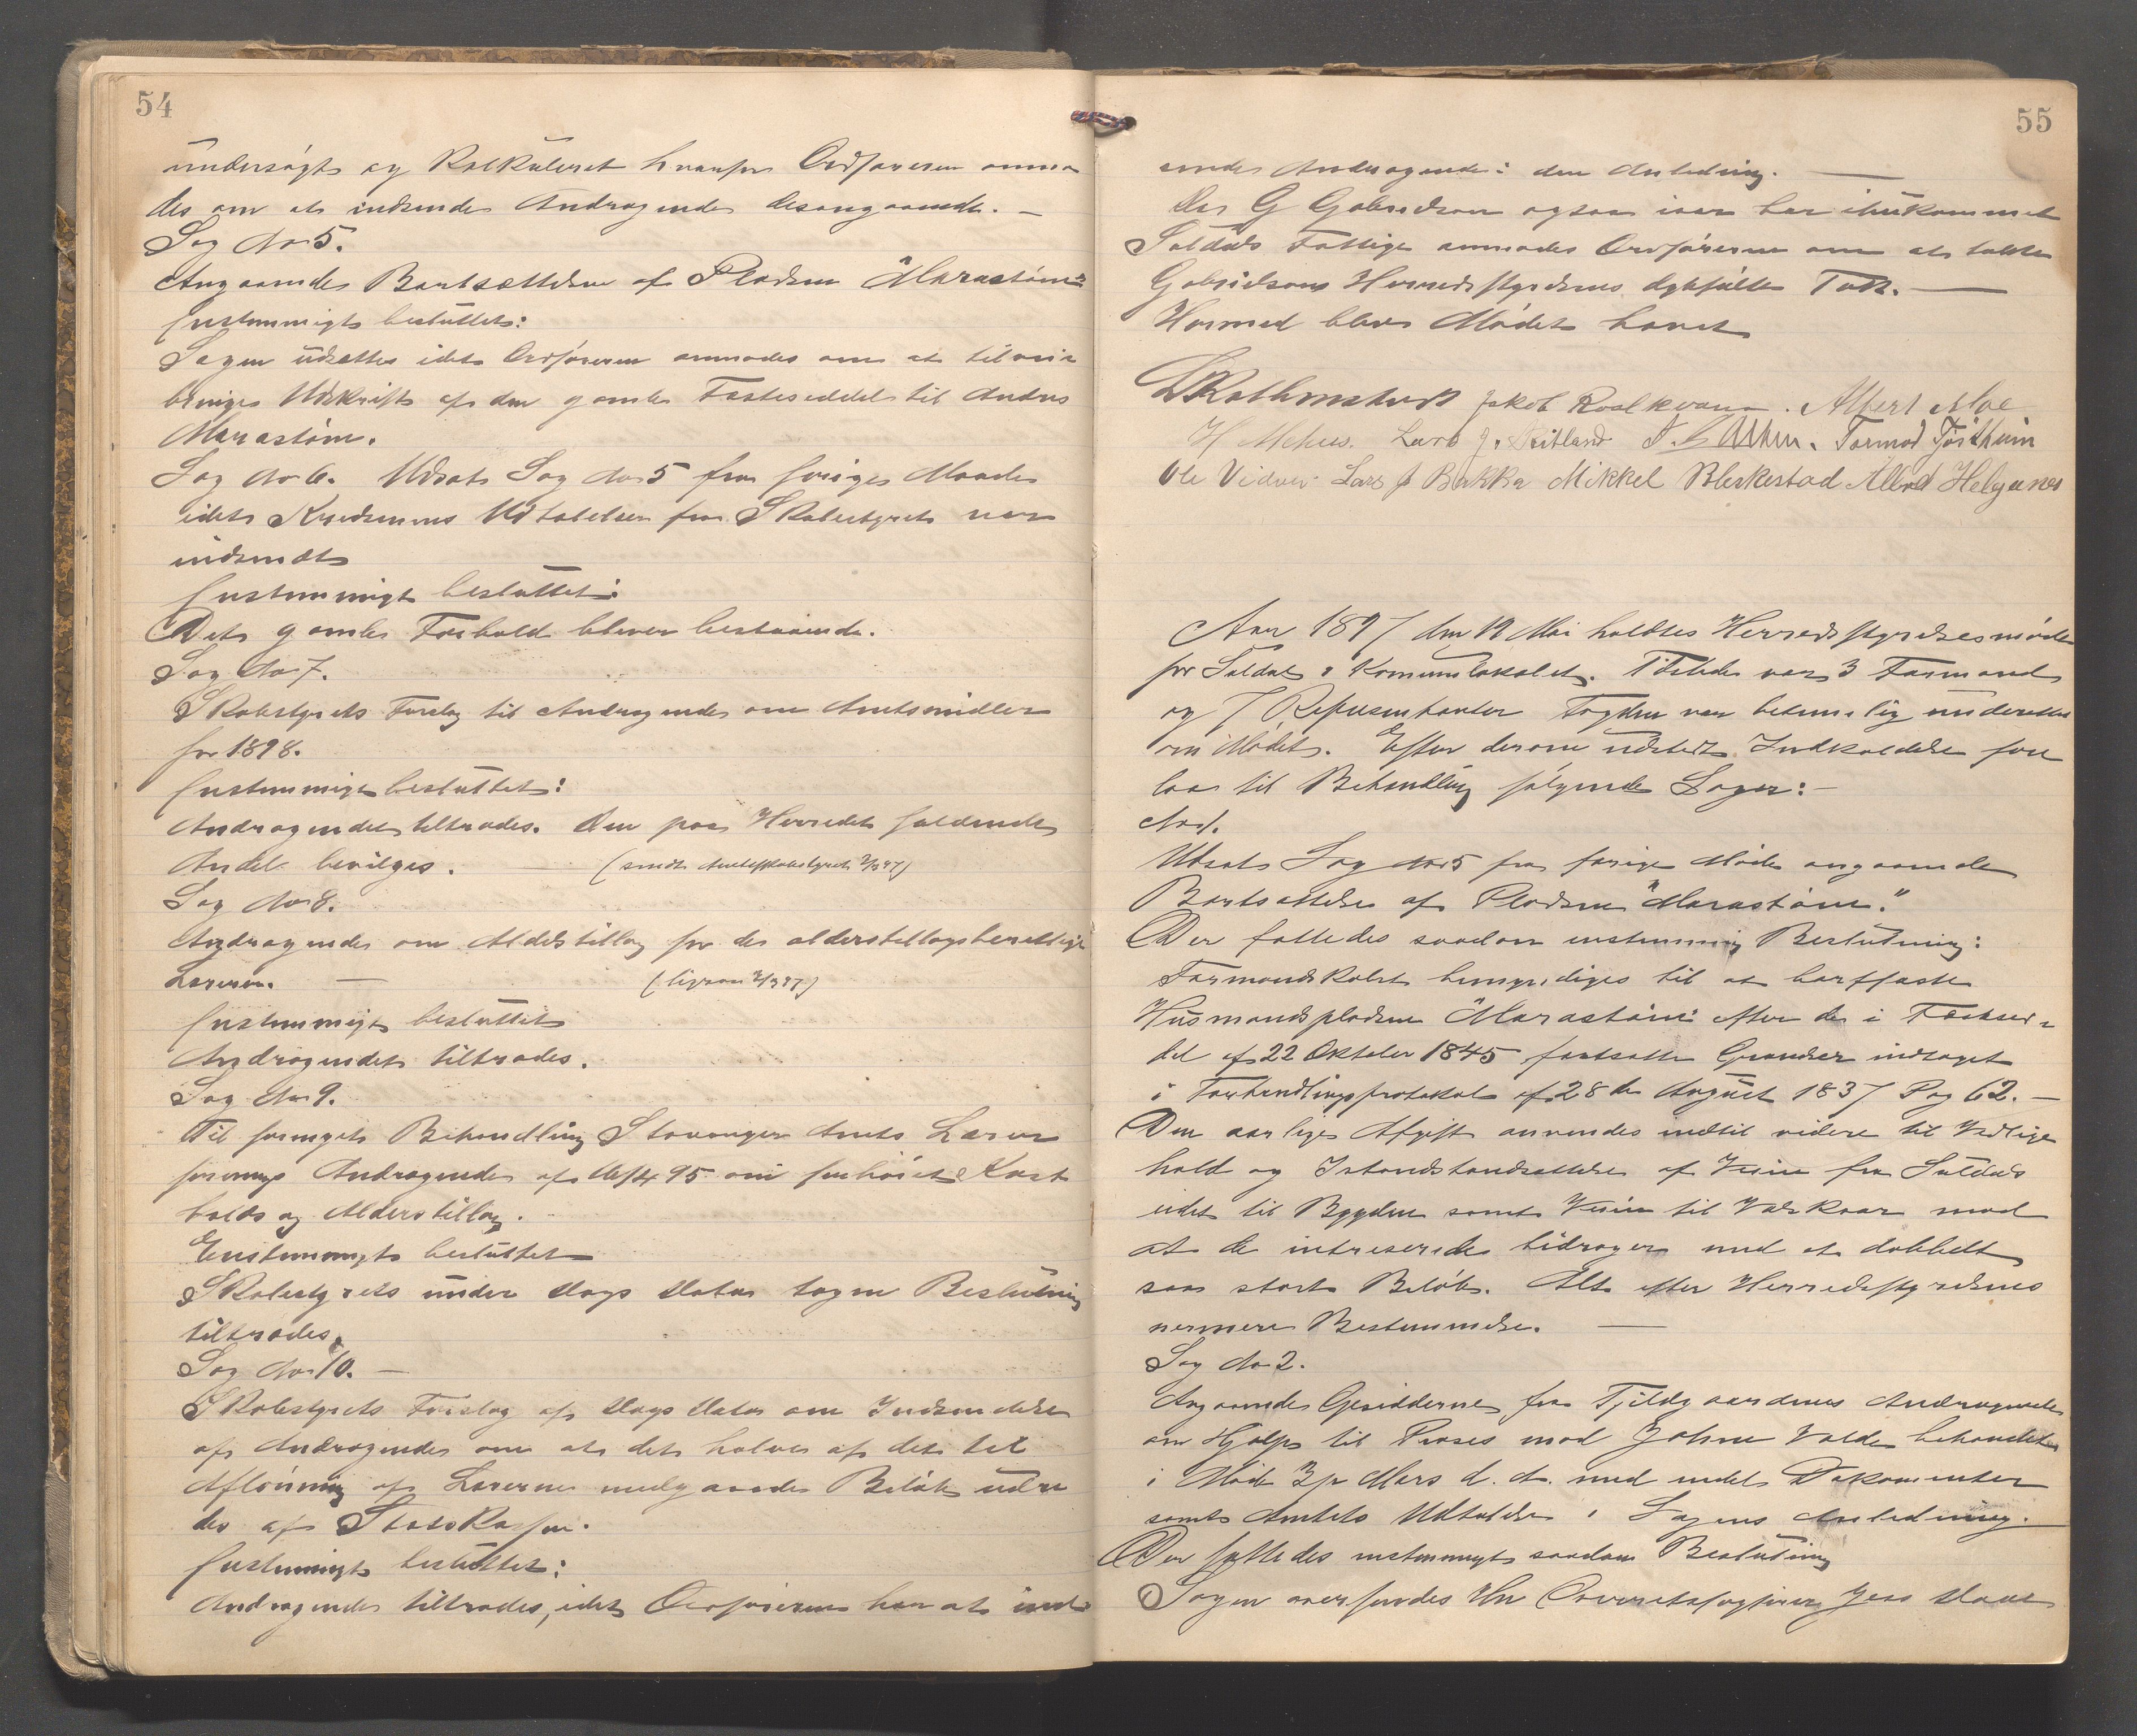 54
undersøgt og Kalkuleret hvorfor Ordføreren anmo
des om at indsende Andragende desangaaende. —
Sag No 5.
Angaaende Bortsættelsen af Pladsen "Marastøm"
Enstemmigt besluttet:
Sagen udsættes idet Ordføreren anmodes om at tilveie
bringe Udskrift af den gamle Festeseddel til Andres
Marastøm.
Sag No 6. Udsat Sag No 5 fra forige Møde
idet Kredsenes Udtalelser fra Skolestyret var
indsendt
Enstemmigt besluttet:
Det gamle Forhold bliver bestaaende.
Sag No 7.
Skolestyrets Forslag til Andragende om Amtsmidler
for 1898.
Enstemmigt besluttet:
Andragendet tiltrædes. Den paa Herredet faldende
Andel bevilges. (sendt Amtsskolestyret
Sag No 8.
Andragende om Alderstillæg for de alderstillægsberettige
Lærere. —
Enstemmigt besluttet
Andragendet tiltrædes.
Sag No 9.
Til fornyet Behandling Stavanger Amts Lærer
forenings Andragende af 95 om forhøiet Kost
holds og Alderstillæg.
Enstemmigt besluttet
Skolestyrets under Dags Dato tagne Beslutning
tiltrædes.
Sag No 10. —
Skolestyrets Forslag af Dags Dato om Indsendelse
af Andragende om at det halve af det til
Aflønning af Lærerne medgaaede Beløb udre
des af Statskassen.
Enstemmigt besluttet:
Andragendet tiltrædes, idet Ordføreren har at ind
55
sende Andragende i den Anledning. —
Da G Gabrielsen ogsaa iaar har ihukommet
Suldals Fattige anmodes Ordføreren om at takke
Gabrielsen Herredsstyrelsens dybfølte Tak. —
Hermed blev Mødet hævet
Jakob Roalkvam. Albert Moe
H Mehus. Lars J. Tormod
Ole Vidvei Lars J Bakka Mikkel Bleskestad Helganes
Aar 1897 den 19 Mai holdtes Herredsstyrelsesmøde
for Suldal i Komunelokalet. Tilstede var 3 Formænd
og 7 Repræsentanter Fogden var betimelig underettet
om Mødet. Efter derom udstedt Indkaldelse fore
laa til Behandling følgende Sager: —
No 1.
Udsat Sag No 5 fra forige Møde angaaende
Bortsættelse af Pladsen "Marastøm."
Der fattedes saadan enstemmig Beslutning:
Formandskabet bemyndiges til at bortfæste
Husmandspladsen "Marastøm" efter de i Festesed-
del af 22 Oktober 1845 fastsatte Grændser indtaget
i Forhandlingsprotokol af 28de August 1837 Pag 62. —
Den aarlige Afgift anvendes indtil videre til Vedlige
hold og Istandsættelse af Veien fra Suldals
eidet til Bygden samt Veien til mod
at de intreserede bidrager med et dobbelt
saa stort Beløb. Alt efter Herredsstyrelsens
nermere Bestemmelse. —
Sag No 2.
Angaaende Opsidderne fra Andragende
om Hjælp til Proses mod behandlet
i Møde Mars d. A. med endel Dokumenter
samt Amtets Udtalelse i Sagens Anledning.
Der fattedes enstemmigt saadan Beslutning
Sagen oversendes Hr Overretssagfører